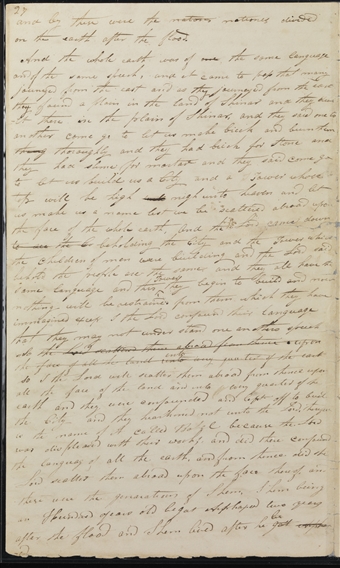 27
and by these were the nations divided
on the earth after the flood
And the whole earth was of the same language
and of the same speech, and it came to pass that many
journeyed from the east and as they journeyed from the east
they found a plain in the land of Shinar and they dwelt
there in the plains of Shinar, and they said one to
another come go to let us make brick and burn them
thoroughly, and they had brick for stone and
they had slime for mortar and they said come go
to let us build us a City and a Tower whose
top will be high nigh unto heaven and let
us make us a name lest we be scattered abroad upon
the face of the whole earth, And the Lord came down
beholding the City and the Tower which
the children of men were building and the Lord said
behold the people are the same and they all have the
same language and this they begin to build and now
nothing will be restrained from them which they have
imagined except I the Lord confound their Language
that they may not understand one another's speech
So I the Lord will scatter them abroad from thence upon
all the face of the land and unto every quarter of the
earth and they were confounded and left off to build
the City and they hearkened not unto the Lord therefore
is the name of it called Babel because the Lord
was displeased with their works and did there confound
the language of all the earth and from thence did the
Lord scatter them abroad upon the face thereof and
these were the generations of Shem, Shem being
an Hundred years old begat Arphaxad two years
after the flood and Shem lived after he begat